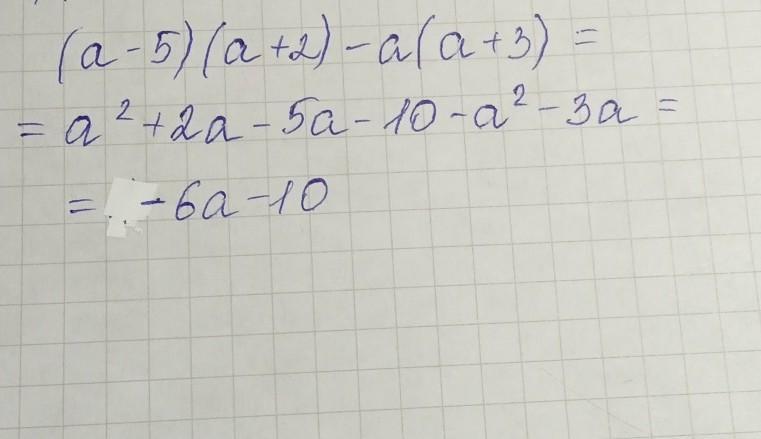 (a-5)(a+2)-a(a+3)=
=a²+2a-5a-10-a²-3a=
=-6a-10